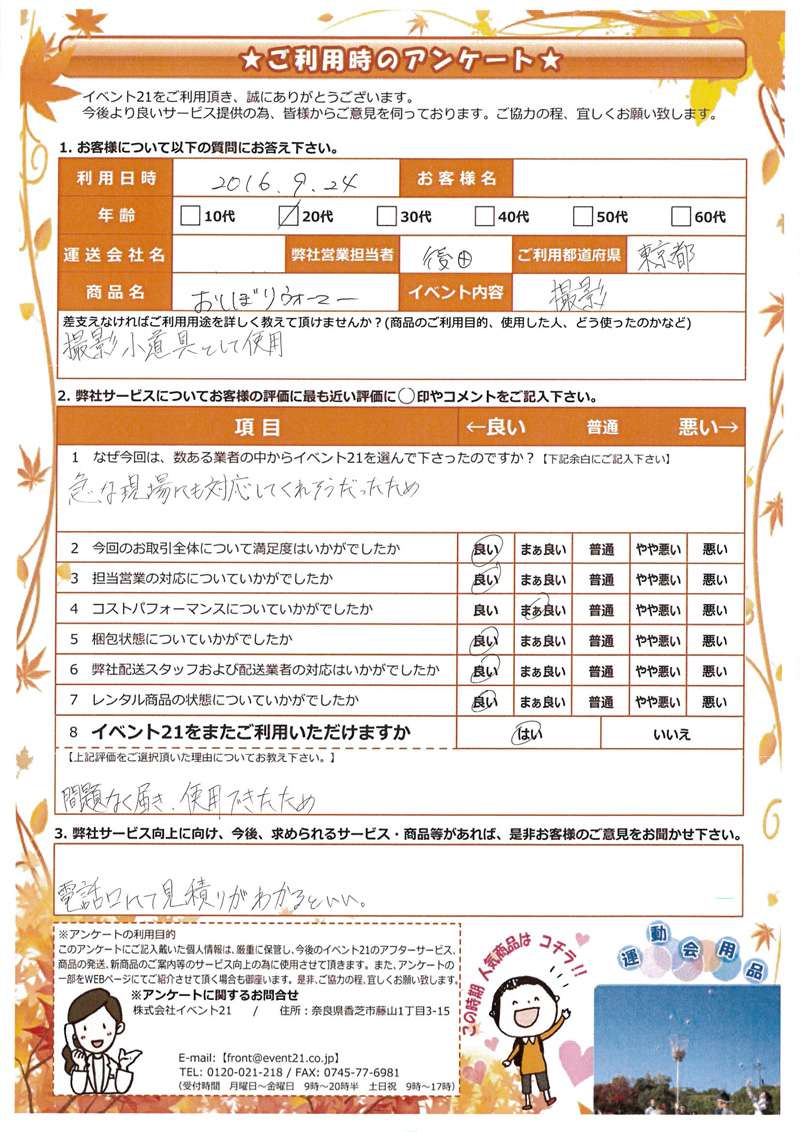 ★ご利用時のアンケート★
イベント21をご利用頂き、誠にありがとうございます。
今後より良いサービス提供の為、皆様からご意見を伺っております。ご協力の程、宜しくお願い致します。
1. お客様について以下の質問にお答え下さい。
利用日時 2016.9.24 お客様名
年齢 10代 20代 30代 40代 50代 60代
運送会社名 弊社営業担当者 後田 ご利用都道府県 東京都
商品名 おしぼりウォーマー イベント内容 撮影
差支えなければご利用用途を詳しく教えて頂けませんか？(商品のご利用目的、使用した人、どう使ったのかなど)
撮影小道具として使用
2. 弊社サービスについてお客様の評価に最も近い評価に◯印やコメントをご記入下さい。
項目 ←良い 普通 悪い→
1 なぜ今回は、数ある業者の中からイベント21を選んで下さったのですか？【下記余白にご記入下さい】
急な現場にも対応してくれそうだったため
2 今回のお取引全体について満足度はいかがでしたか 良い まぁ良い 普通 やや悪い 悪い
3 担当営業の対応についていかがでしたか 良い まぁ良い 普通 やや悪い 悪い
4 コストパフォーマンスについていかがでしたか 良い まぁ良い 普通 やや悪い 悪い
5 梱包状態についていかがでしたか 良い まぁ良い 普通 やや悪い 悪い
6 弊社配送スタッフおよび配送業者の対応はいかがでしたか 良い まぁ良い 普通 やや悪い 悪い
7 レンタル商品の状態についていかがでしたか 良い まぁ良い 普通 やや悪い 悪い
8 イベント21をまたご利用いただけますか はい いいえ
【上記評価をご選択頂いた理由についてお教え下さい。】
問題なく届き、使用できたため
3. 弊社サービス向上に向け、今後、求められるサービス・商品等があれば、是非お客様のご意見をお聞かせ下さい。
電話口にて見積りがわかるといい。
※アンケートの利用目的
このアンケートにご記入戴いた個人情報は、厳重に保管し、今後のイベント21のアフターサービス、
商品の発送、新商品のご案内等のサービス向上の為に使用させて頂きます。また、アンケートの
一部をWEBページにてご紹介させて頂く場合も御座います。是非、ご協力の程、宜しくお願い致します。
※アンケートに関するお問合せ
株式会社イベント21 / 住所：奈良県香芝市藤山1丁目3-15
E-mail:【front@event21.co.jp】
TEL: 0120-021-218 / FAX: 0745-77-6981
（受付時間 月曜日～金曜日 9時～20時半 土日祝 9時～17時）
この時期 人気商品は コチラ!!
運動会用品